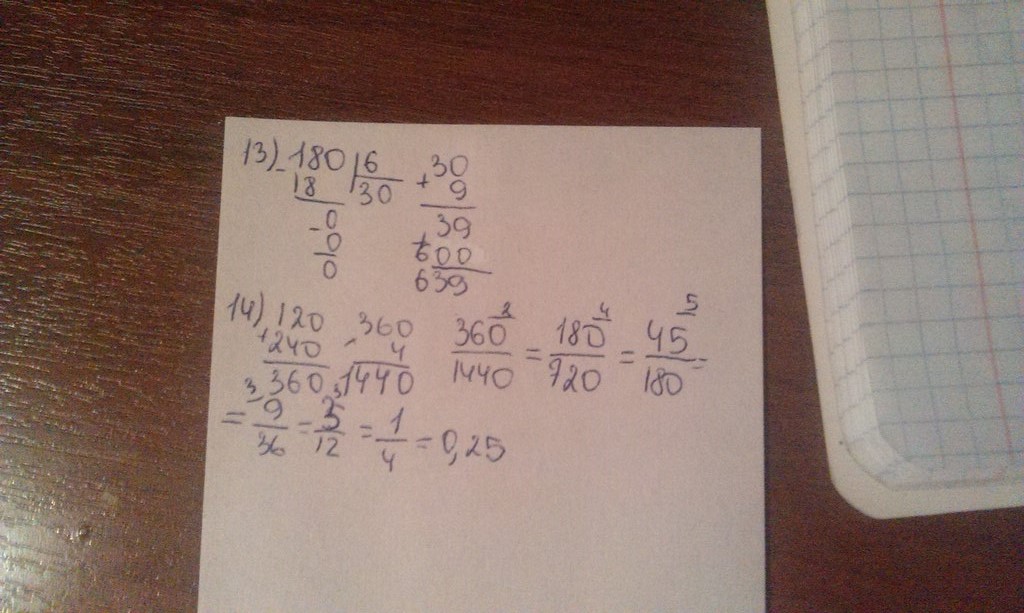 13) - 180 | 6   30
18   30   + 9
- 0   39
0   + 600
0   639
14) 120   360   360 2 / 1440 = 180 4 / 720 = 45 5 / 180 =
+ 240   · 4
360   1440
= 9 3 / 36 = 3 3 / 12 = 1 / 4 = 0,25